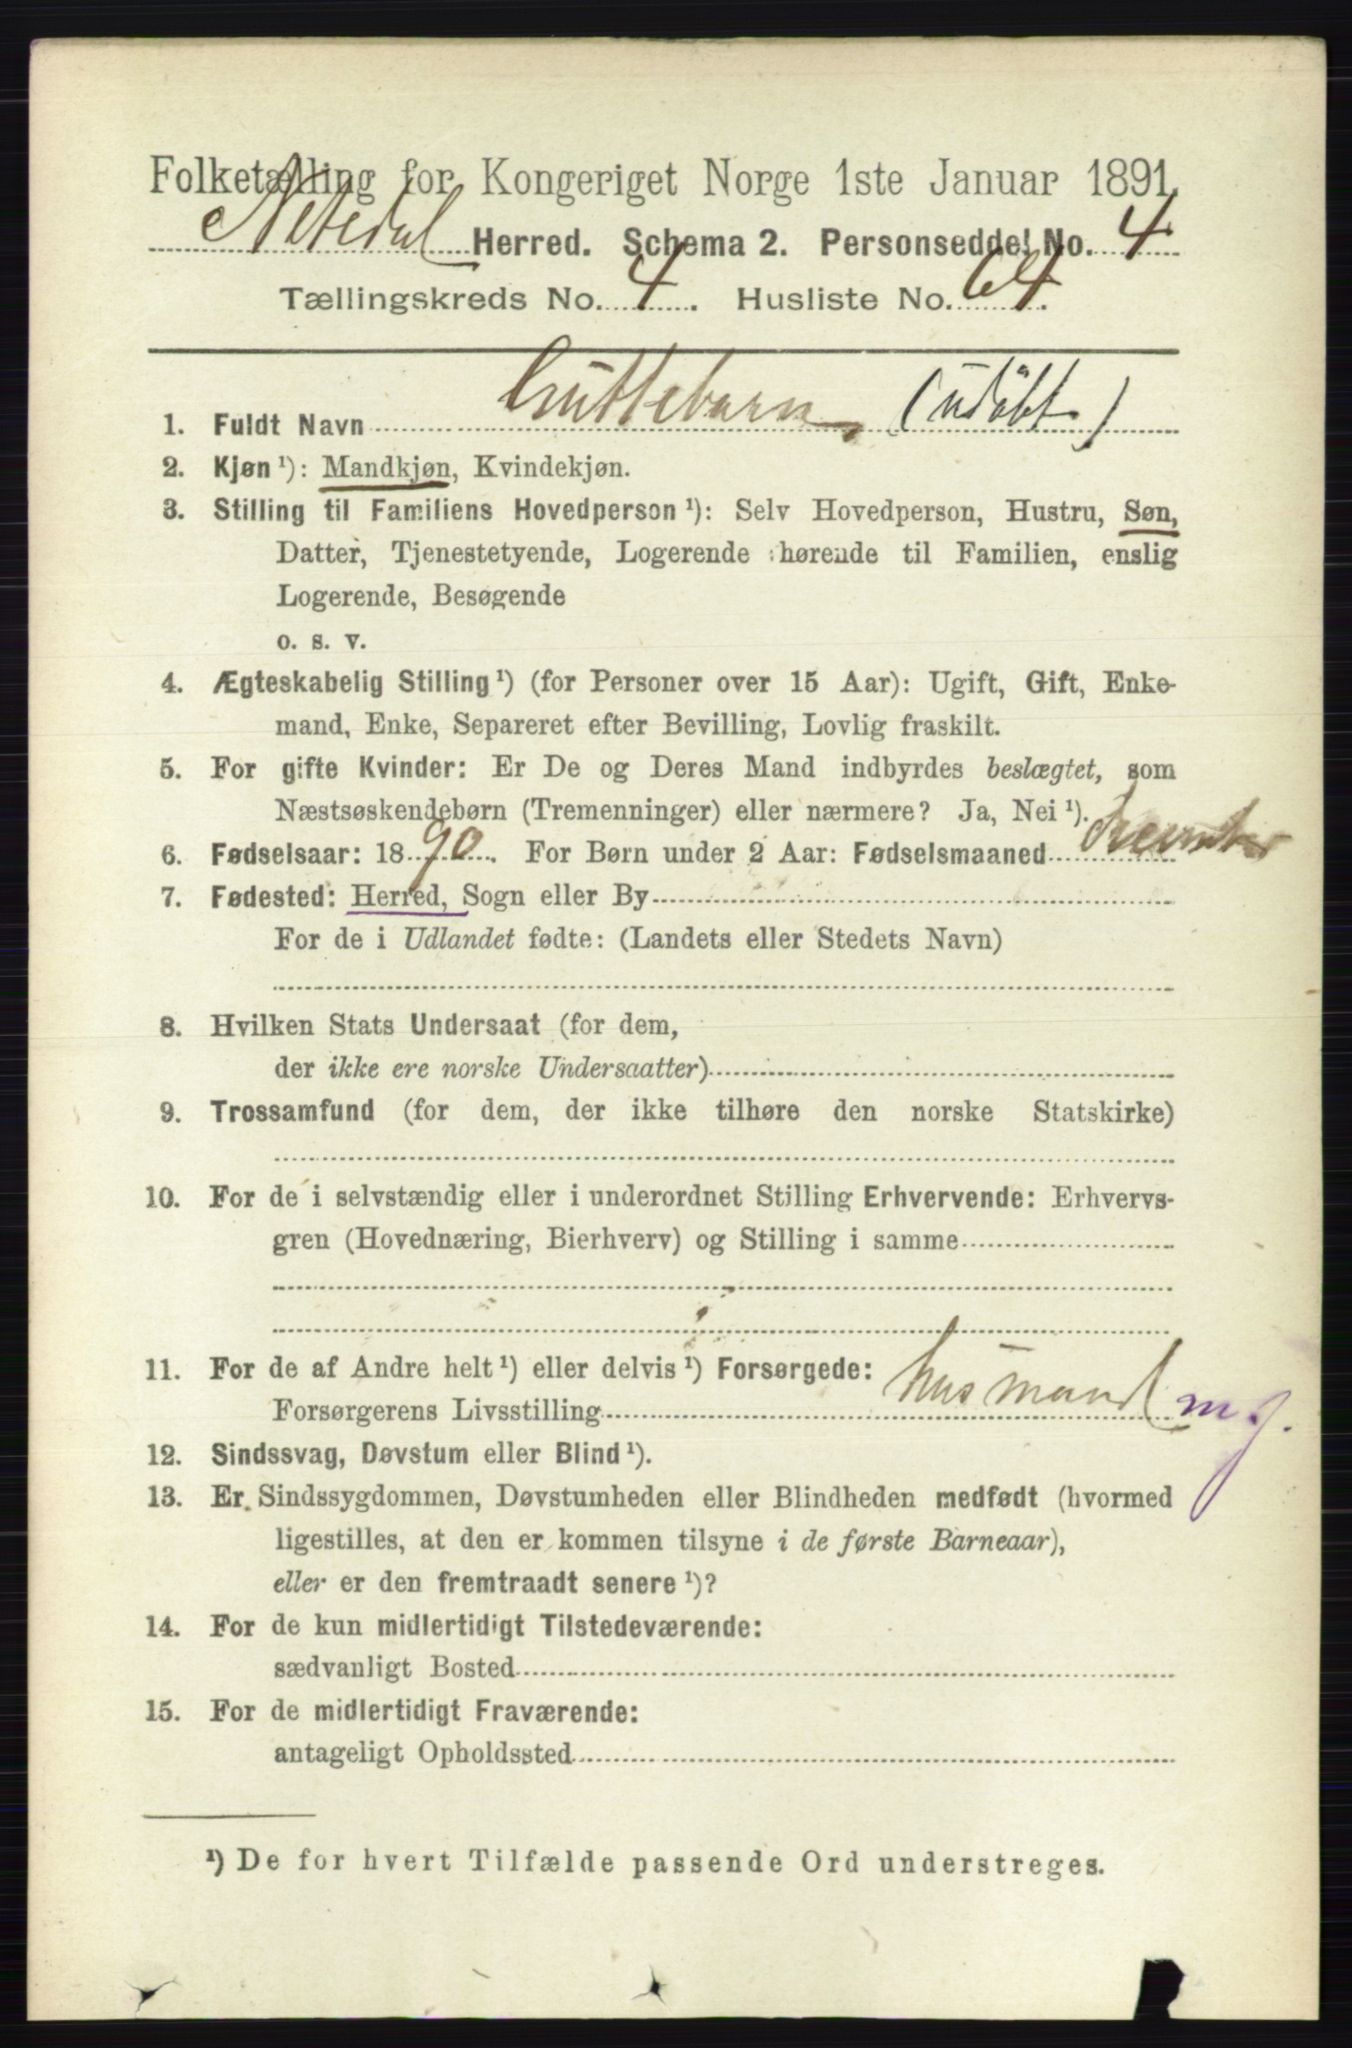 Folketælling for Kongeriget Norge 1ste Januar 1891.
Nitedal Herred. Schema 2. Personseddel No. 4
Tællingskreds No. 4. Husliste No. 64.
1. Fuldt Navn Guttebarn, (udøbt)
2. Kjøn ¹): Mandkjøn, Kvindekjøn.
3. Stilling til Familiens Hovedperson ¹): Selv Hovedperson, Hustru, Søn,
Datter, Tjenestetyende, Logerende hørende til Familien, enslig
Logerende, Besøgende
o. s. v.
4. Ægteskabelig Stilling ¹) (for Personer over 15 Aar): Ugift, Gift, Enke-
mand, Enke, Separeret efter Bevilling, Lovlig fraskilt.
5. For gifte Kvinder: Er De og Deres Mand indbyrdes beslægtet, som
Næstsøskendebørn (Tremenninger) eller nærmere? Ja, Nei ¹).
6. Fødselsaar: 1890. For Børn under 2 Aar: Fødselsmaaned
7. Fødested: Herred, Sogn eller By
For de i Udlandet fødte: (Landets eller Stedets Navn)
8. Hvilken Stats Undersaat (for dem,
der ikke ere norske Undersaatter)
9. Trossamfund (for dem, der ikke tilhøre den norske Statskirke)
10. For de i selvstændig eller i underordnet Stilling Erhvervende: Erhvervs-
gren (Hovednæring, Bierhverv) og Stilling i samme
11. For de af Andre helt ¹) eller delvis ¹) Forsørgede:
Forsørgerens Livsstilling husmand m. j.
12. Sindssvag, Døvstum eller Blind ¹).
13. Er Sindssygdommen, Døvstumheden eller Blindheden medfødt (hvormed
ligestilles, at den er kommen tilsyne i de første Barneaar),
eller er den fremtraadt senere ¹)?
14. For de kun midlertidigt Tilstedeværende:
sædvanligt Bosted
15. For de midlertidigt Fraværende:
antageligt Opholdssted
¹) De for hvert Tilfælde passende Ord understreges.